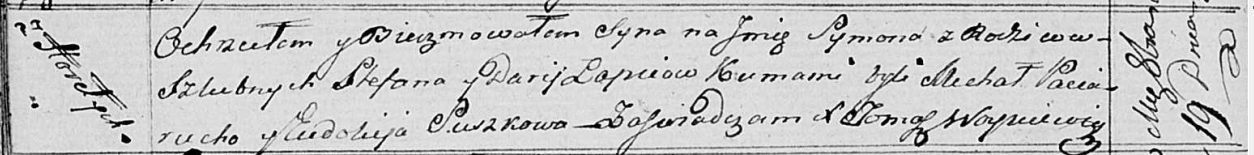 Ochrzciłem y Bierzmowałem Syna na Jmię Symona z Rodziców
Szlubnych Stefana y Daryi Łapciów Kumami byli Michał Pacia-
rucho y Eudokija Puszkowa Zaświadczam X Tomasz Woyniewicz
19 Dnia